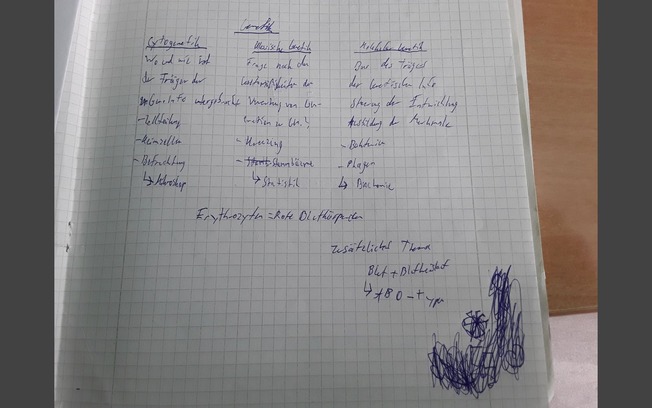 Genetik
Cytogenetik
Wo und wie ist
der Träger der
Gen. Info untergebracht
- Zellteilung
- Keimzellen
- Befruchtung
↳ Mikroskop
Klassische Genetik
Frage nach den
der
Vererbung von
- Kreuzung
- Stammbäume
↳ Statistik
Molekulare Genetik
des Trägers
der genetischen Info
Steuerung der Entwicklung
Ausbildung der Merkmale
- Bakterien
- Phagen
↳ Biochemie
Erythrozyten = Rote Blutkörperchen
Zusätzliches Thema
Blut +
↳ AB0 - Typen